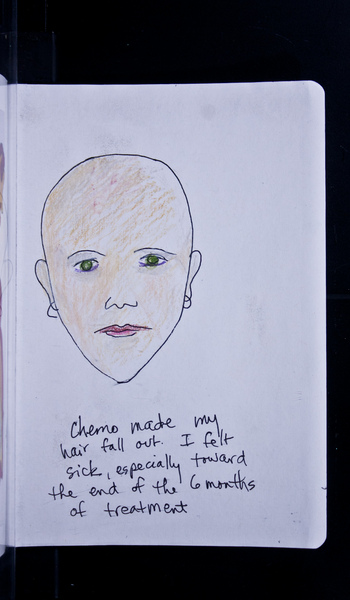 Chemo made my
hair fall out. I felt
sick, especially toward
the end of the 6 months
of treatment